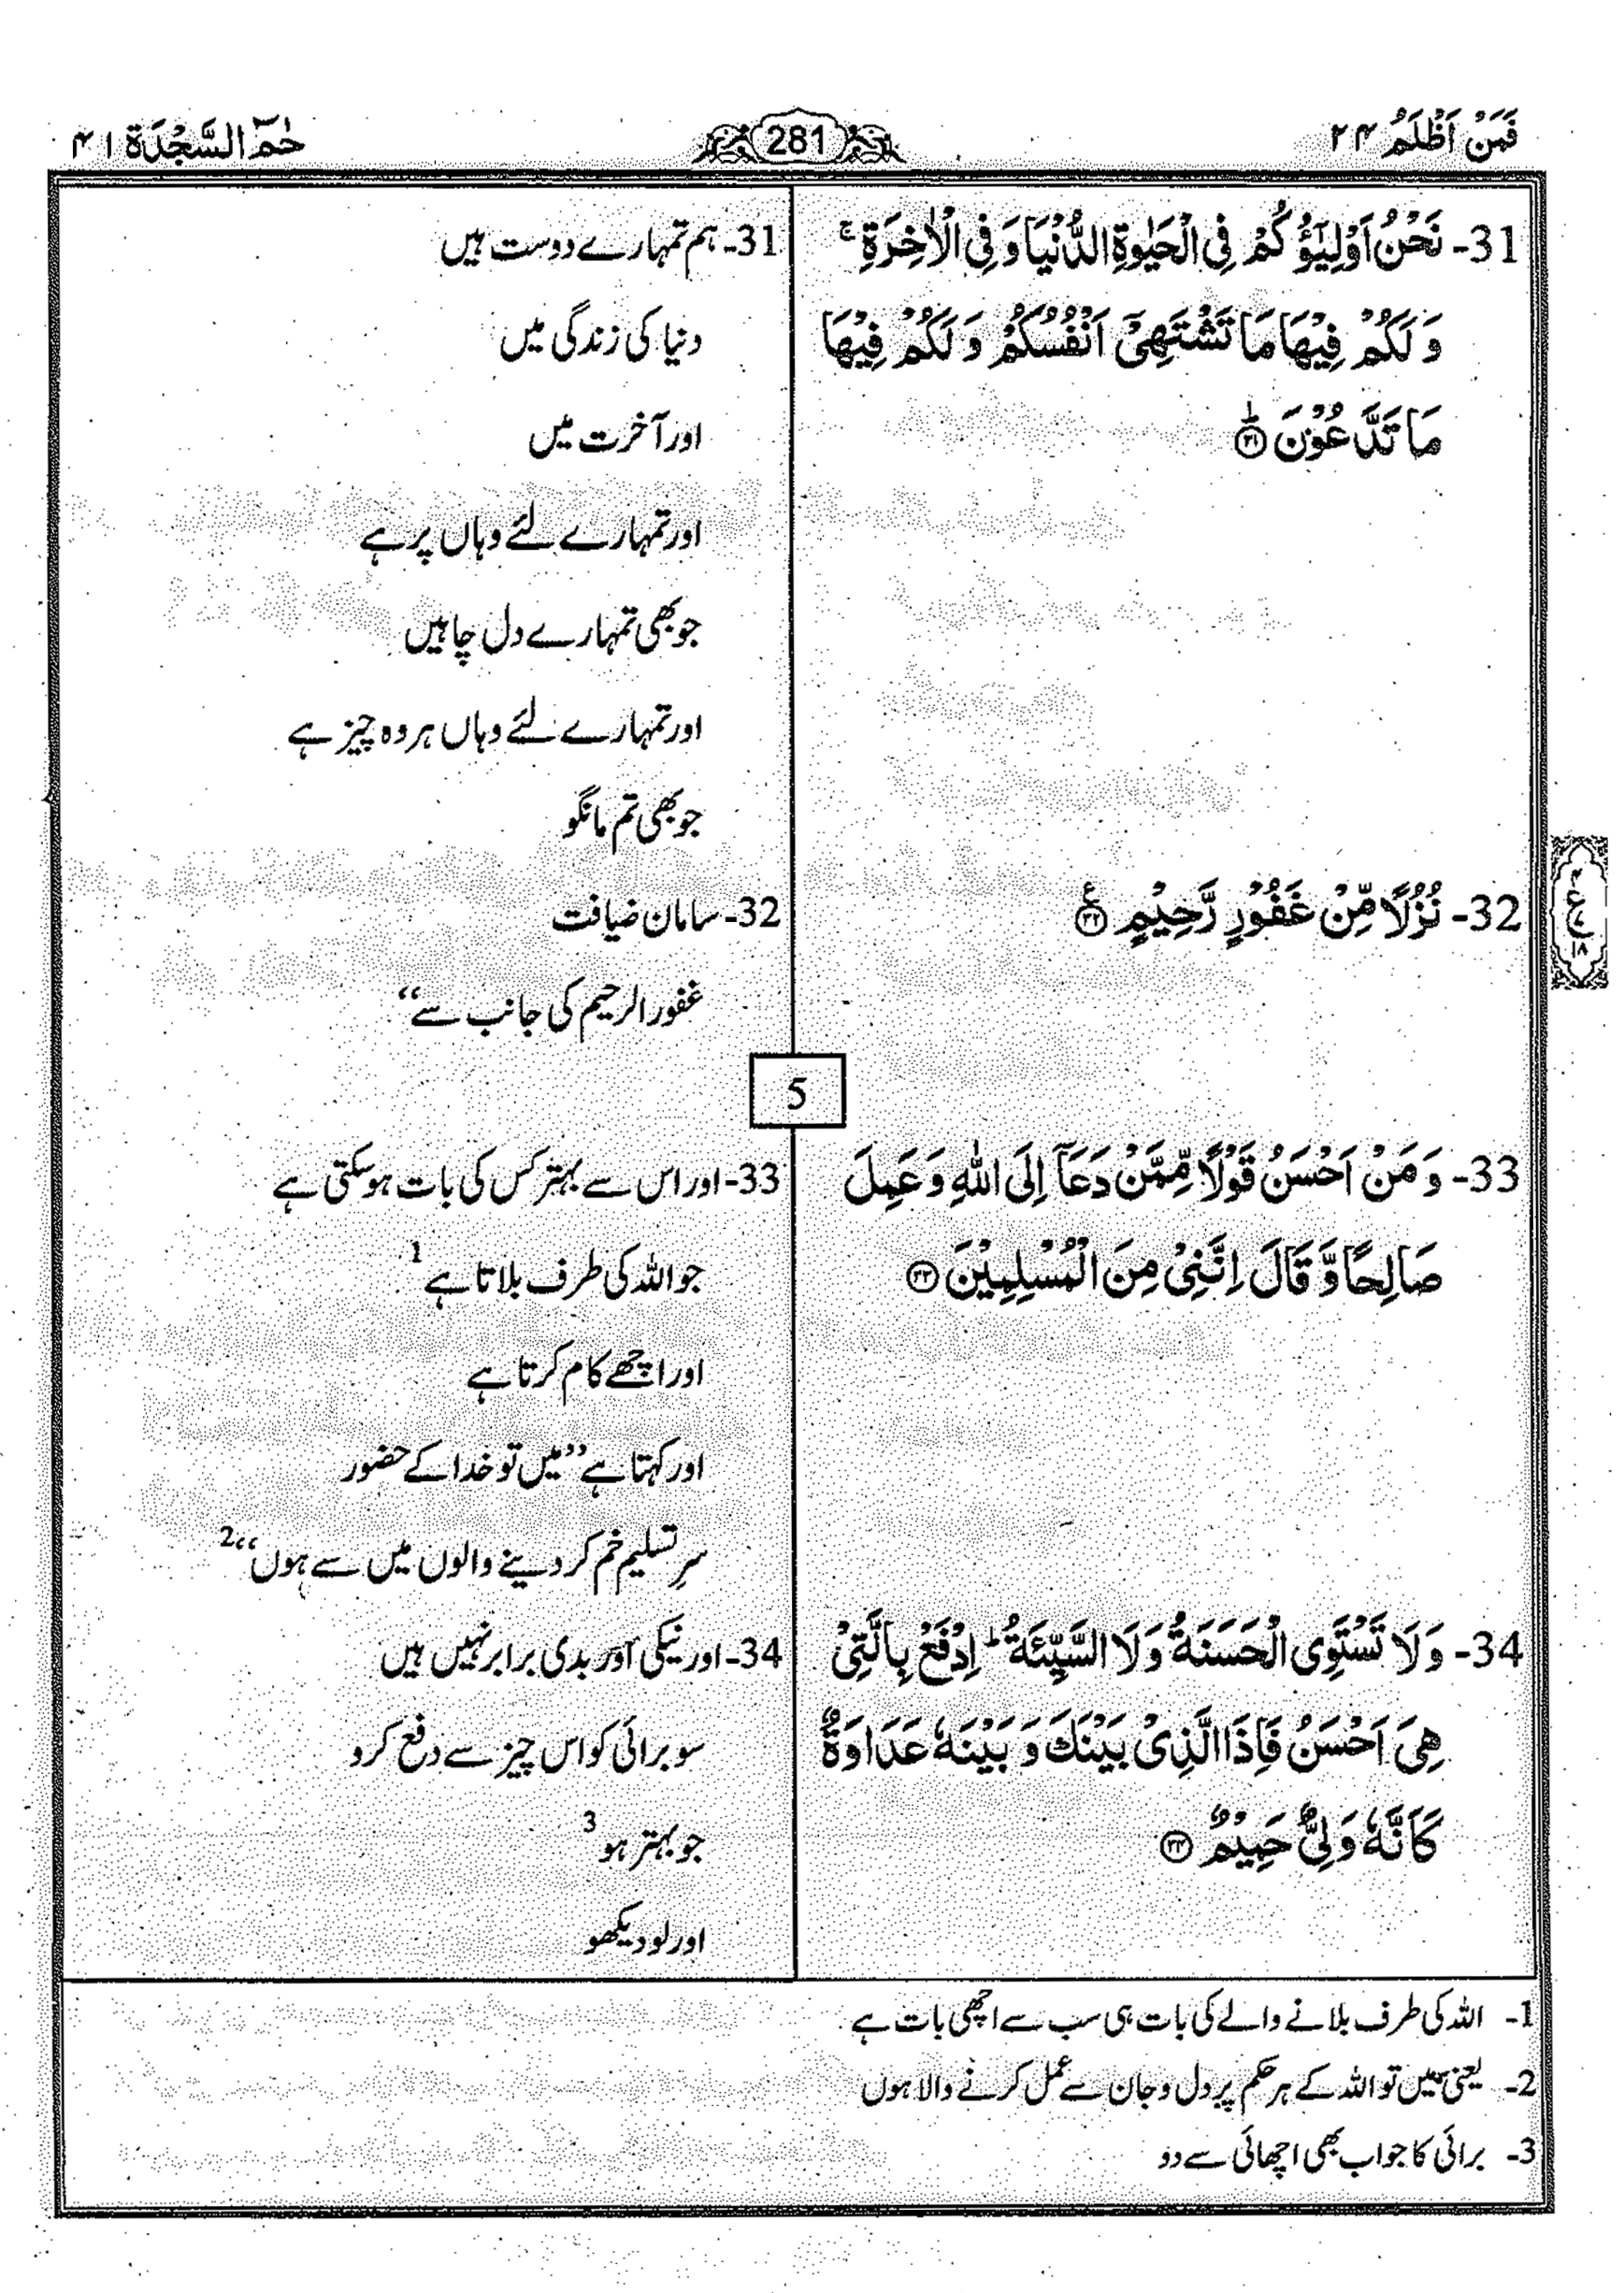 فَمَنْ اَظْلَمُ ۲۴
281
حٰمٓ السَّجْدَة ۴۱
31- نَحْنُ اَوْلِيٰٓؤُكُمْ فِي الْحَيٰوةِ الدُّنْيَا وَفِي الْاٰخِرَةِ ۚ
وَ لَكُمْ فِيْهَا مَا تَشْتَهِيْٓ اَنْفُسُكُمْ وَ لَكُمْ فِيْهَا
مَا تَدَّعُوْنَ ؕ ۳۱
31- ہم تمہارے دوست ہیں
دنیا کی زندگی میں
اور آخرت میں
اور تمہارے لئے وہاں پر ہے
جو بھی تمہارے دل چاہیں
اور تمہارے لئے وہاں ہر وہ چیز ہے
جو بھی تم مانگو
32- نُزُلًا مِّنْ غَفُوْرٍ رَّحِيْمٍ ۳۲
32- سامان ضیافت
غفور الرحیم کی جانب سے“
ع
۱۸
5
33- وَ مَنْ اَحْسَنُ قَوْلًا مِّمَّنْ دَعَآ اِلَى اللّٰهِ وَ عَمِلَ
صَالِحًا وَّ قَالَ اِنَّنِيْ مِنَ الْمُسْلِمِيْنَ ۳۳
33- اور اس سے بہتر کس کی بات ہو سکتی ہے
جو اللہ کی طرف بلاتا ہے 1
اور اچھے کام کرتا ہے
اور کہتا ہے ”میں تو خدا کے حضور
سرِ تسلیم خم کر دینے والوں میں سے ہوں“ 2
34- وَلَا تَسْتَوِي الْحَسَنَةُ وَلَا السَّيِّئَةُ ؕ اِدْفَعْ بِالَّتِيْ
هِيَ اَحْسَنُ فَاِذَا الَّذِيْ بَيْنَكَ وَ بَيْنَهٗ عَدَاوَةٌ
كَاَنَّهٗ وَلِيٌّ حَمِيْمٌ ۳۴
34- اور نیکی اور بدی برابر نہیں ہیں
سو برائی کو اس چیز سے دفع کرو
جو بہتر ہو 3
اور لو دیکھو
1- اللہ کی طرف بلانے والے کی بات ہی سب سے اچھی بات ہے
2- یعنی میں تو اللہ کے ہر حکم پر دل و جان سے عمل کرنے والا ہوں
3- برائی کا جواب بھی اچھائی سے دو